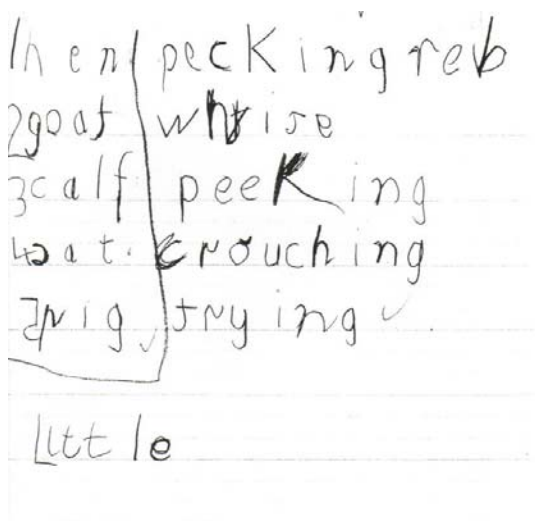 1hen pecking reb
2goat whise
3calf peeking
4bat. crouching
5pig, trying
Little